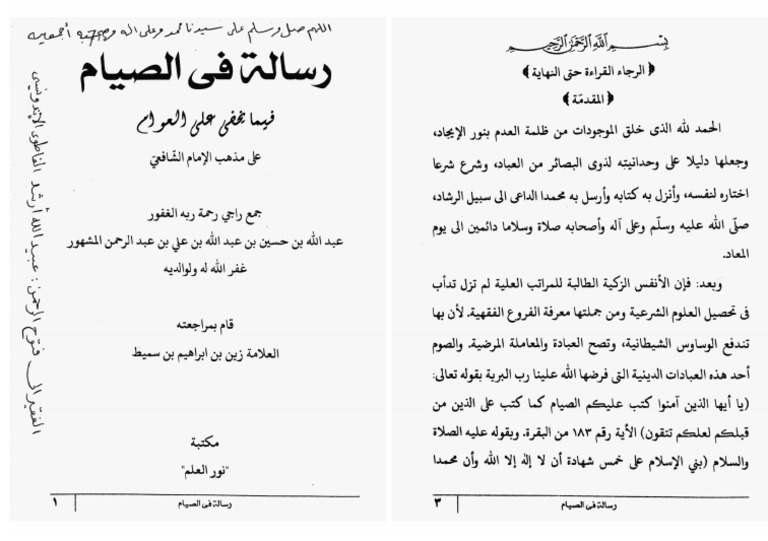 اللهم صل وسلم على سيدنا محمد وعلى اله وصحبه أجمعين
رسالة فى الصيام
فيما يخفى على العوام
على مذهب الإمام الشافعيّ
جمع راجي رحمة ربه الغفور
عبد الله بن حسين بن عبد الله بن علي بن عبد الرحمن المشهور
غفر الله له ولوالديه
قام بمراجعته
العلامة زين بن ابراهيم بن سميط
مكتبة
"نور العلم"
رسالة فى الصيام
١
الفقير الى فتوح الرحمن : عبيد الله أرشد الفاطوى الإندونيسي
بسم الله الرحمن الرحيم
﴿الرجاء القراءة حتى النهاية﴾
﴿المقدمة﴾
الحمد لله الذى خلق الموجودات من ظلمة العدم بنور الإيجاد،
وجعلها دليلا على وحدانيته لذوى البصائر من العباد، وشرع شرعا
اختاره لنفسه، وأنزل به كتابه وأرسل به محمدا الداعى الى سبيل الرشاد،
صلّى الله عليه وسلّم وعلى آله وأصحابه صلاة وسلاما دائمين الى يوم
المعاد.
وبعد: فإن الأنفس الزكية الطالبة للمراتب العلية لم تزل تدأب
فى تحصيل العلوم الشرعية ومن جملتها معرفة الفروع الفقهية. لأن بها
تندفع الوساوس الشيطانية، وتصح العبادة والمعاملة المرضية. والصوم
أحد هذه العبادات الدينية التى فرضها الله علينا رب البرية بقوله تعالى:
(يا أيها الذين آمنوا كتب عليكم الصيام كما كتب على الذين من
قبلكم لعلكم تتقون) الأية رقم ١٨٣ من البقرة. وبقوله عليه الصلاة
والسلام (بني الإسلام على خمس شهادة أن لا إله إلا الله وأن محمدا
رسالة فى الصيام
٣